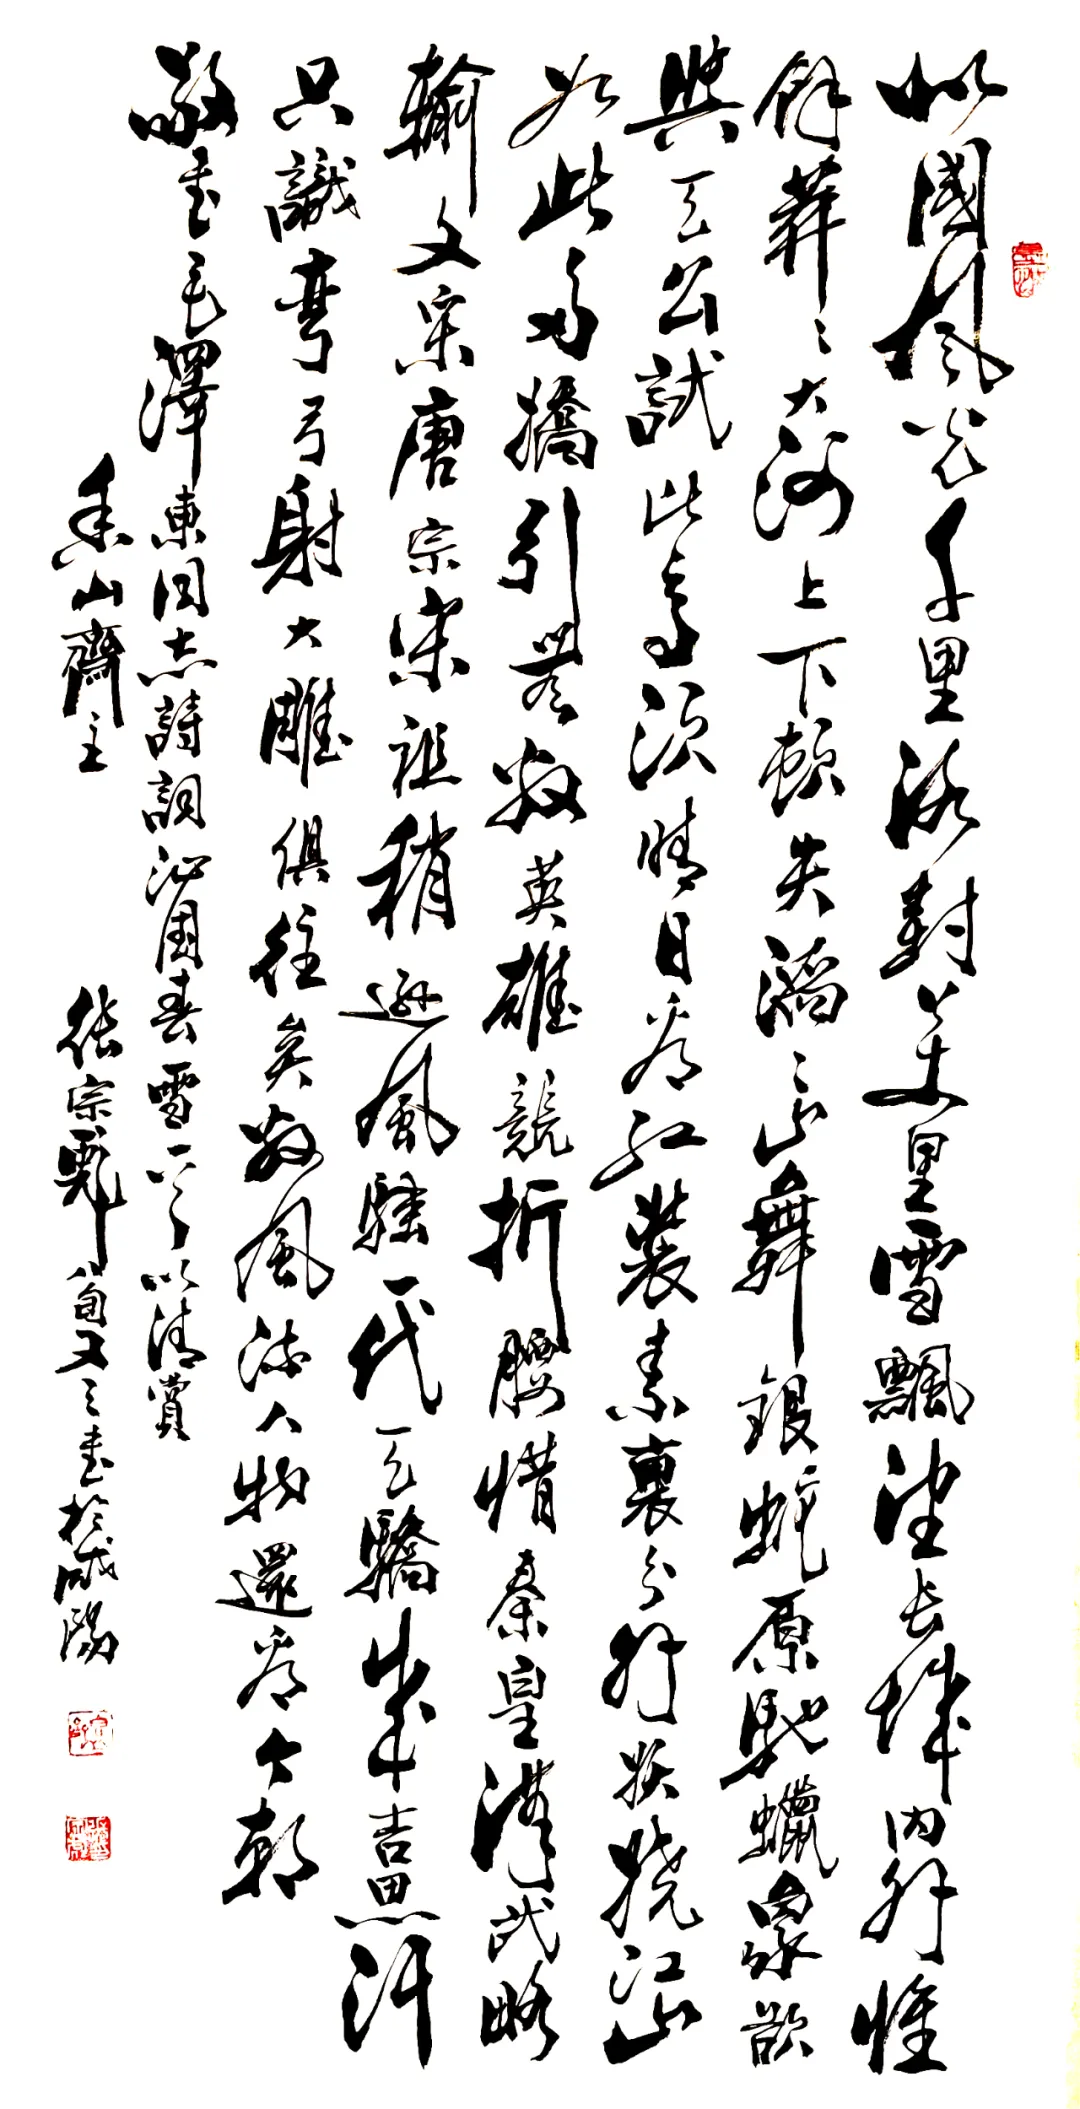 北國風光千里冰封萬里雪飄望長城內外惟
餘莽々大河上下頓失滔々山舞銀蛇原馳蠟象欲
與天公試比高須晴日看紅裝素裹分外妖嬈江山
如此多嬌引無數英雄競折腰惜秦皇漢武略
輸文采唐宗宋祖稍遜風騷一代天驕成吉思汗
只識彎弓射大雕俱往矣數風流人物還看今朝
敬書毛澤東同志詩詞沁園春雪一首以清賞
香山齋主 張宗彪 八旬又三書於咸陽